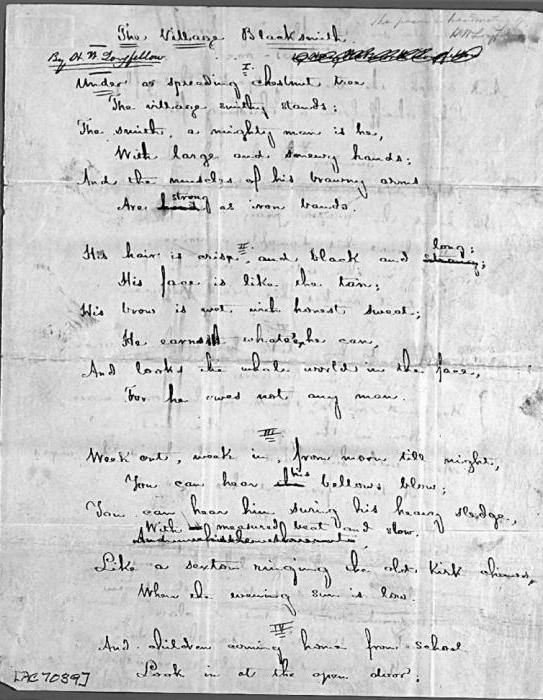 The Village Blacksmith.
By H. W. Longfellow
I.
Under a spreading chestnut tree
The village smithy stands;
The smith, a mighty man is he,
With large and sinewy hands;
And the muscles of his brawny arms
Are strong as iron bands.
II
His hair is crisp, and black and long;
His face is like the tan;
His brow is wet with honest sweat;
He earns whate'er he can,
And looks the whole world in the face,
For he owes not any man.
III
Week out, week in, from morn till night,
You can hear his bellows blow;
You can hear him swing his heavy sledge,
With measured beat and slow.
Like a sexton ringing the old kirk chimes,
When the evening sun is low.
IV
And children coming home from school
Look in at the open door;
[AC7039]